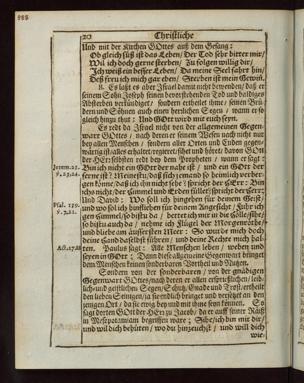 888
20 Christliche
Und mit der Kirchen GOttes auß dem Gesang:
Ob gleich süß ist das Leben/ Der Tod sehr bitter mir/
Wil ich doch gerne sterben/ Zu folgen willig dir/
Ich weiß ein besser Leben/ Da meine Seel fahrt hin/
Deß freu ich mich gar eben/ Sterben ist mein Gewiñ.
Es läßt es aber Israel damit nicht bewenden/ daß er
seinem Sohn Joseph seinen bevorstehenden Tod und seeliges
Absterben verkündiget/ sondern ertheilet ihme/ seinen Brü-
dern und Söhnen auch einen herrlichen Segen/ wann er so
gleich hinzu thut: Und GOtt wird mit euch seyn.
Es redt da Israel nicht von der allgemeinen Gegen-
wart GOttes/ nach deren er seinem Wesen nach nicht nur
bey allen Menschen/ sondern aller Orten und Enden gegen-
wärtig ist/ alles erhaltet/ regieret/ sihet und höret/ davon GOtt
der HErr selbsten redt bey dem Propheten/ wann er sagt:
Jerem. 23. Bin ich nicht ein GOtt der nahe ist/ und ein GOtt der
v. 23. 24. ferne ist? Meinestu/ daß sich jemand so heimlich verber-
gen könne/ daß ich ihn nicht sehe? spricht der HErr: Bin
ichs nicht/ der Himmel und Erden füllet? spricht der HErr:
Und David: Wo soll ich hingehen für deinem Geist/
Psal. 139. und wo soll ich hinfliehen für deinem Angesicht/ führ ich
v. 7. 21. gen Himmel/ so bistu da/ bettet ich mir in die Hölle/ sihe/
so bistu auch da/ nehme ich Flügel der Morgenröthe/
und bliebe am äussersten Meer: So wurde mich doch
deine Hand daselbst führen/ und deine Rechte mich hal-
Act. 17. 28 ten. Paulus sagt: Alle Menschen leben/ weben und
seyen in GOtt; Dann diese allgemeine Gegenwart bringet
dem Menschen keinen sonderbaren Vortheil und Nutzen.
Sondern von der sonderbaren/ von der gnädigen
Gegenwart GOttes/ nach deren er allen ersprießlichen/ leib-
lich und geistlichen Segen/ Schutz/ Gnade und Trost/ ertheilt
den lieben Seinigen/ ja sie endlich bringet und versetzet an den
jenigen Ort/ da sie ewig bey und mit ihme seyn können. So
sagt dorten GOtt der HErr zu Jacob/ da er auff seiner Räiß
in Mesopotamiam begriffen ware; Sihe/ ich bin mit dir/
und wil dich behüten/ wo du hinzeuchst/ und will dich
wie-